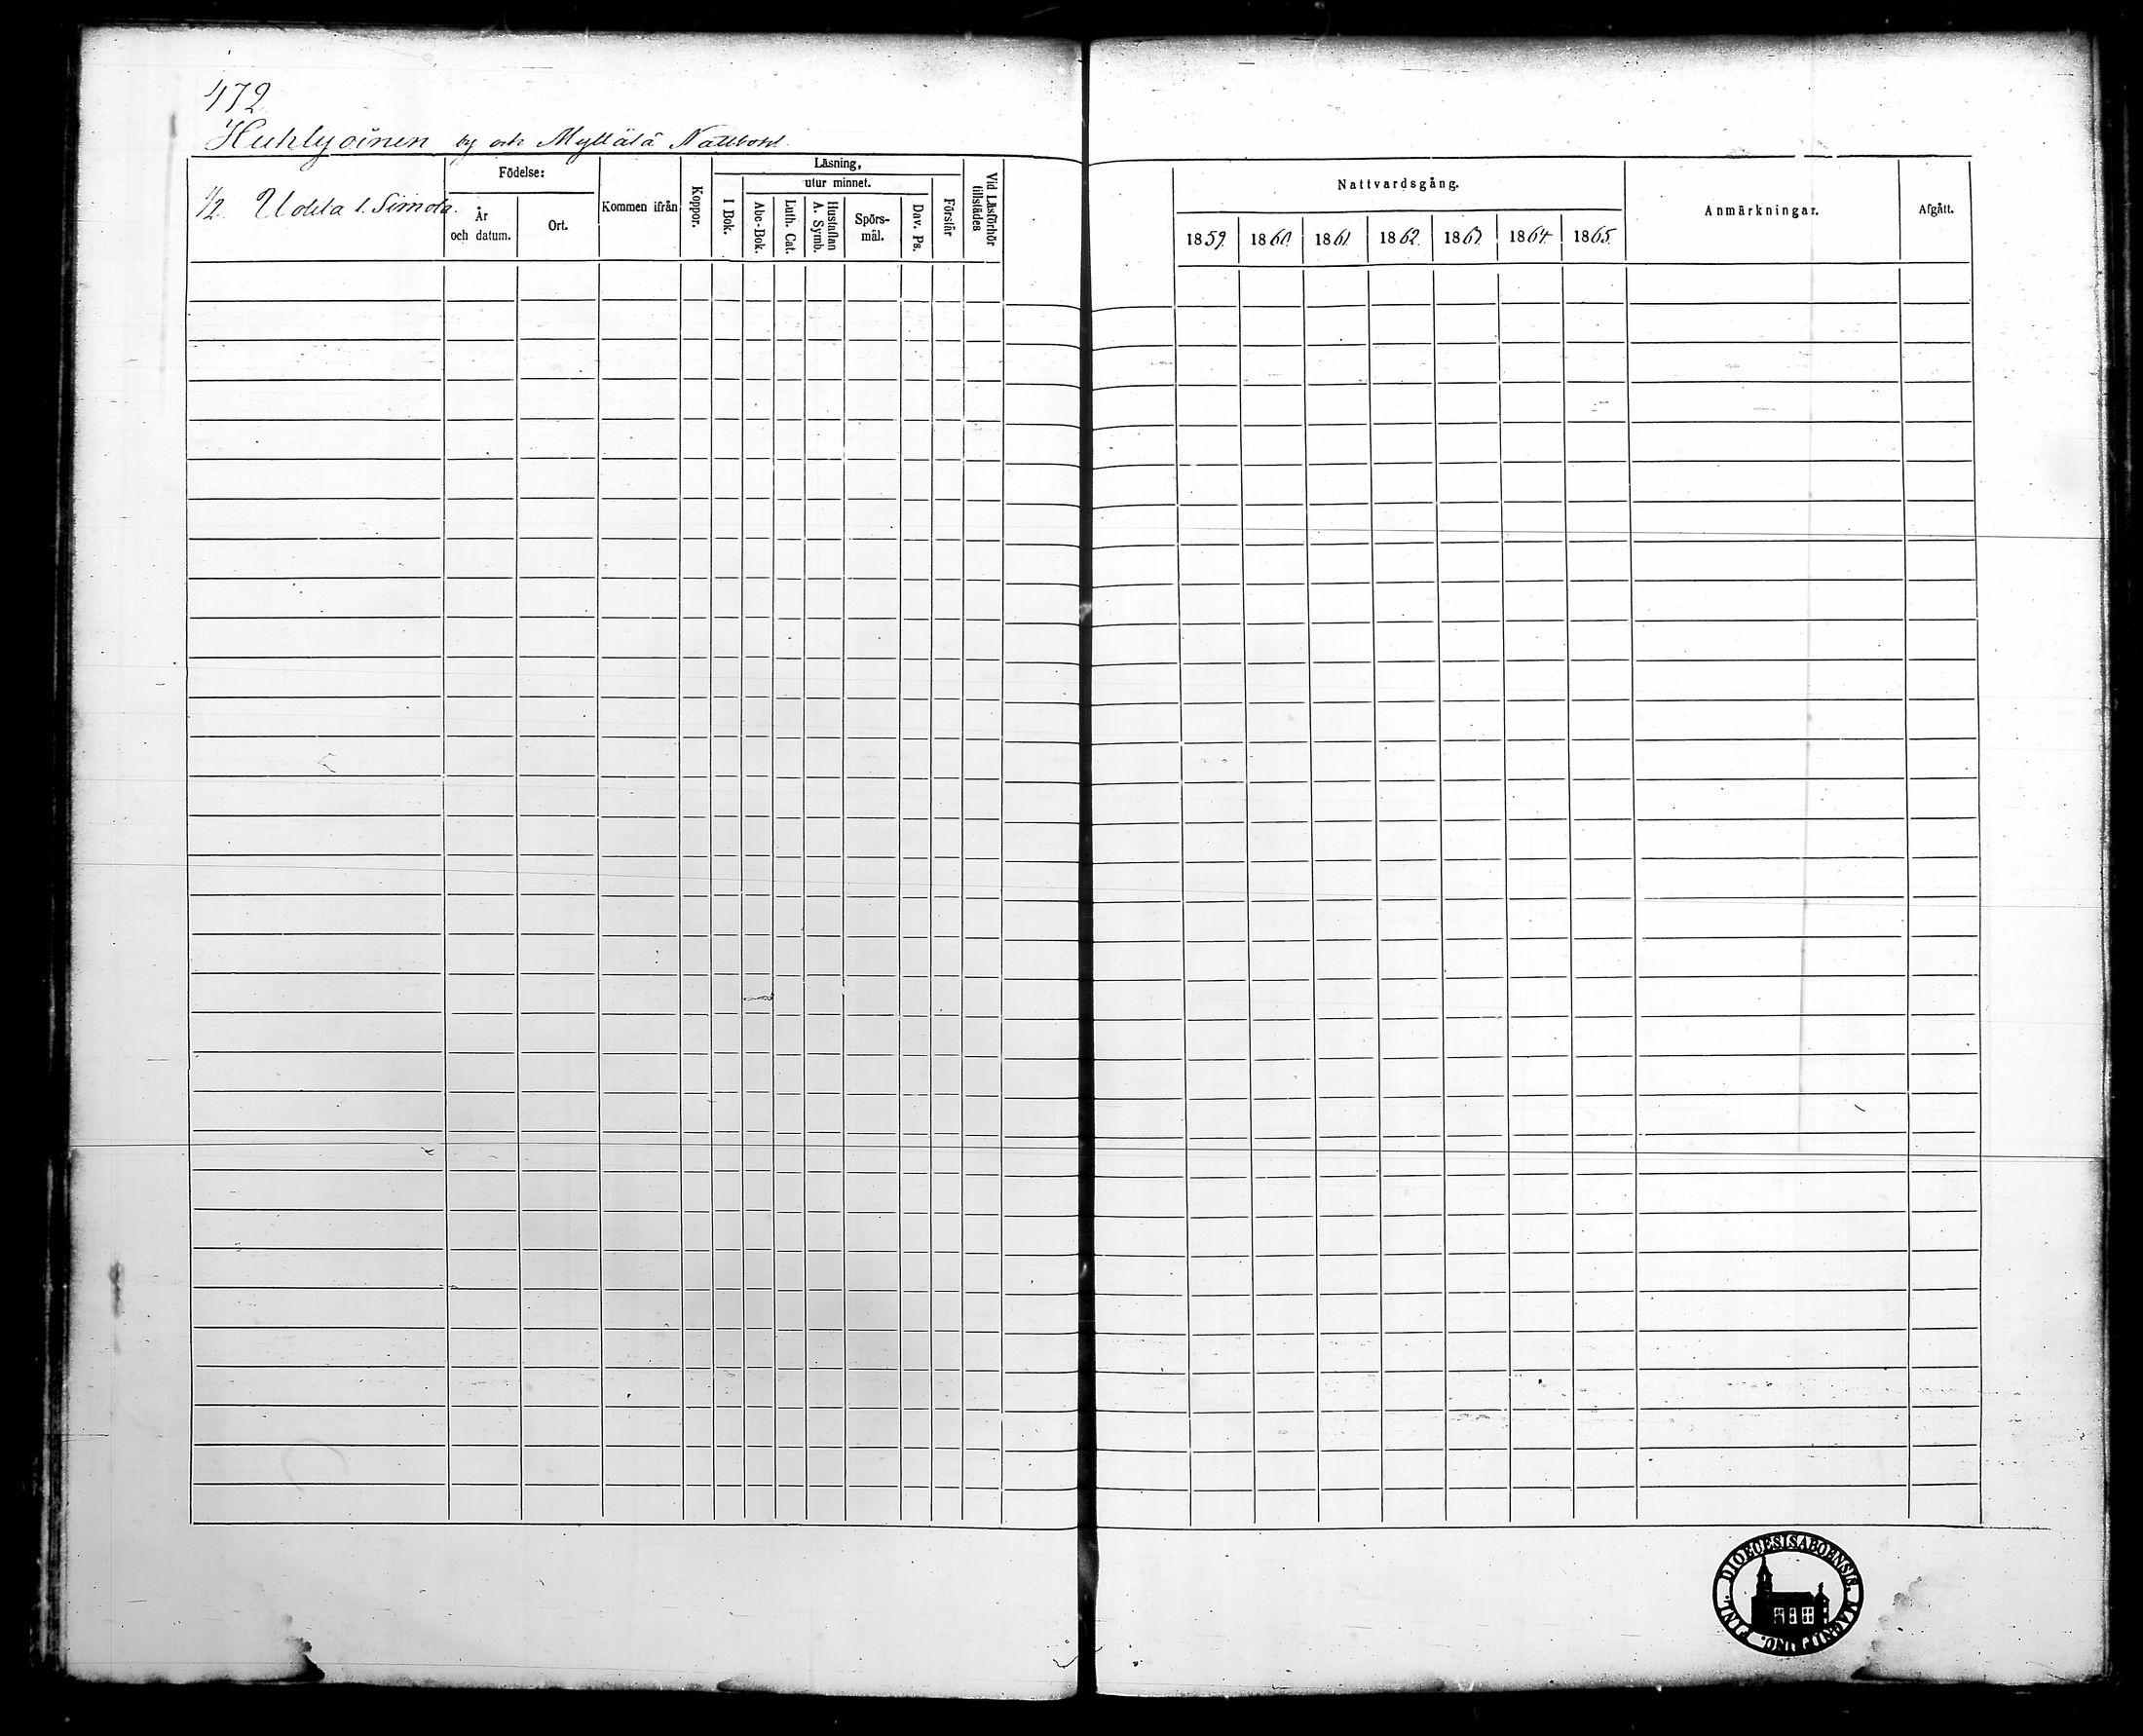 472
Huhlyoinen by och Myllälä Nattbohl
1/2. Uolila l. Simola.
Födelse:
År och datum.
Ort.
Kommen ifrån
Koppor.
Läsning,
utur minnet.
I Bok.
Abc-Bok.
Luth. Cat.
Hustaflan A. Symb.
Spörs-
mål.
Dav. Ps.
Förstår
Vid Läsförhör tillstädes
Nattvardsgång.
1859. 1860. 1861. 1862. 1863. 1864. 1865.
Anmärkningar.
Afgått.